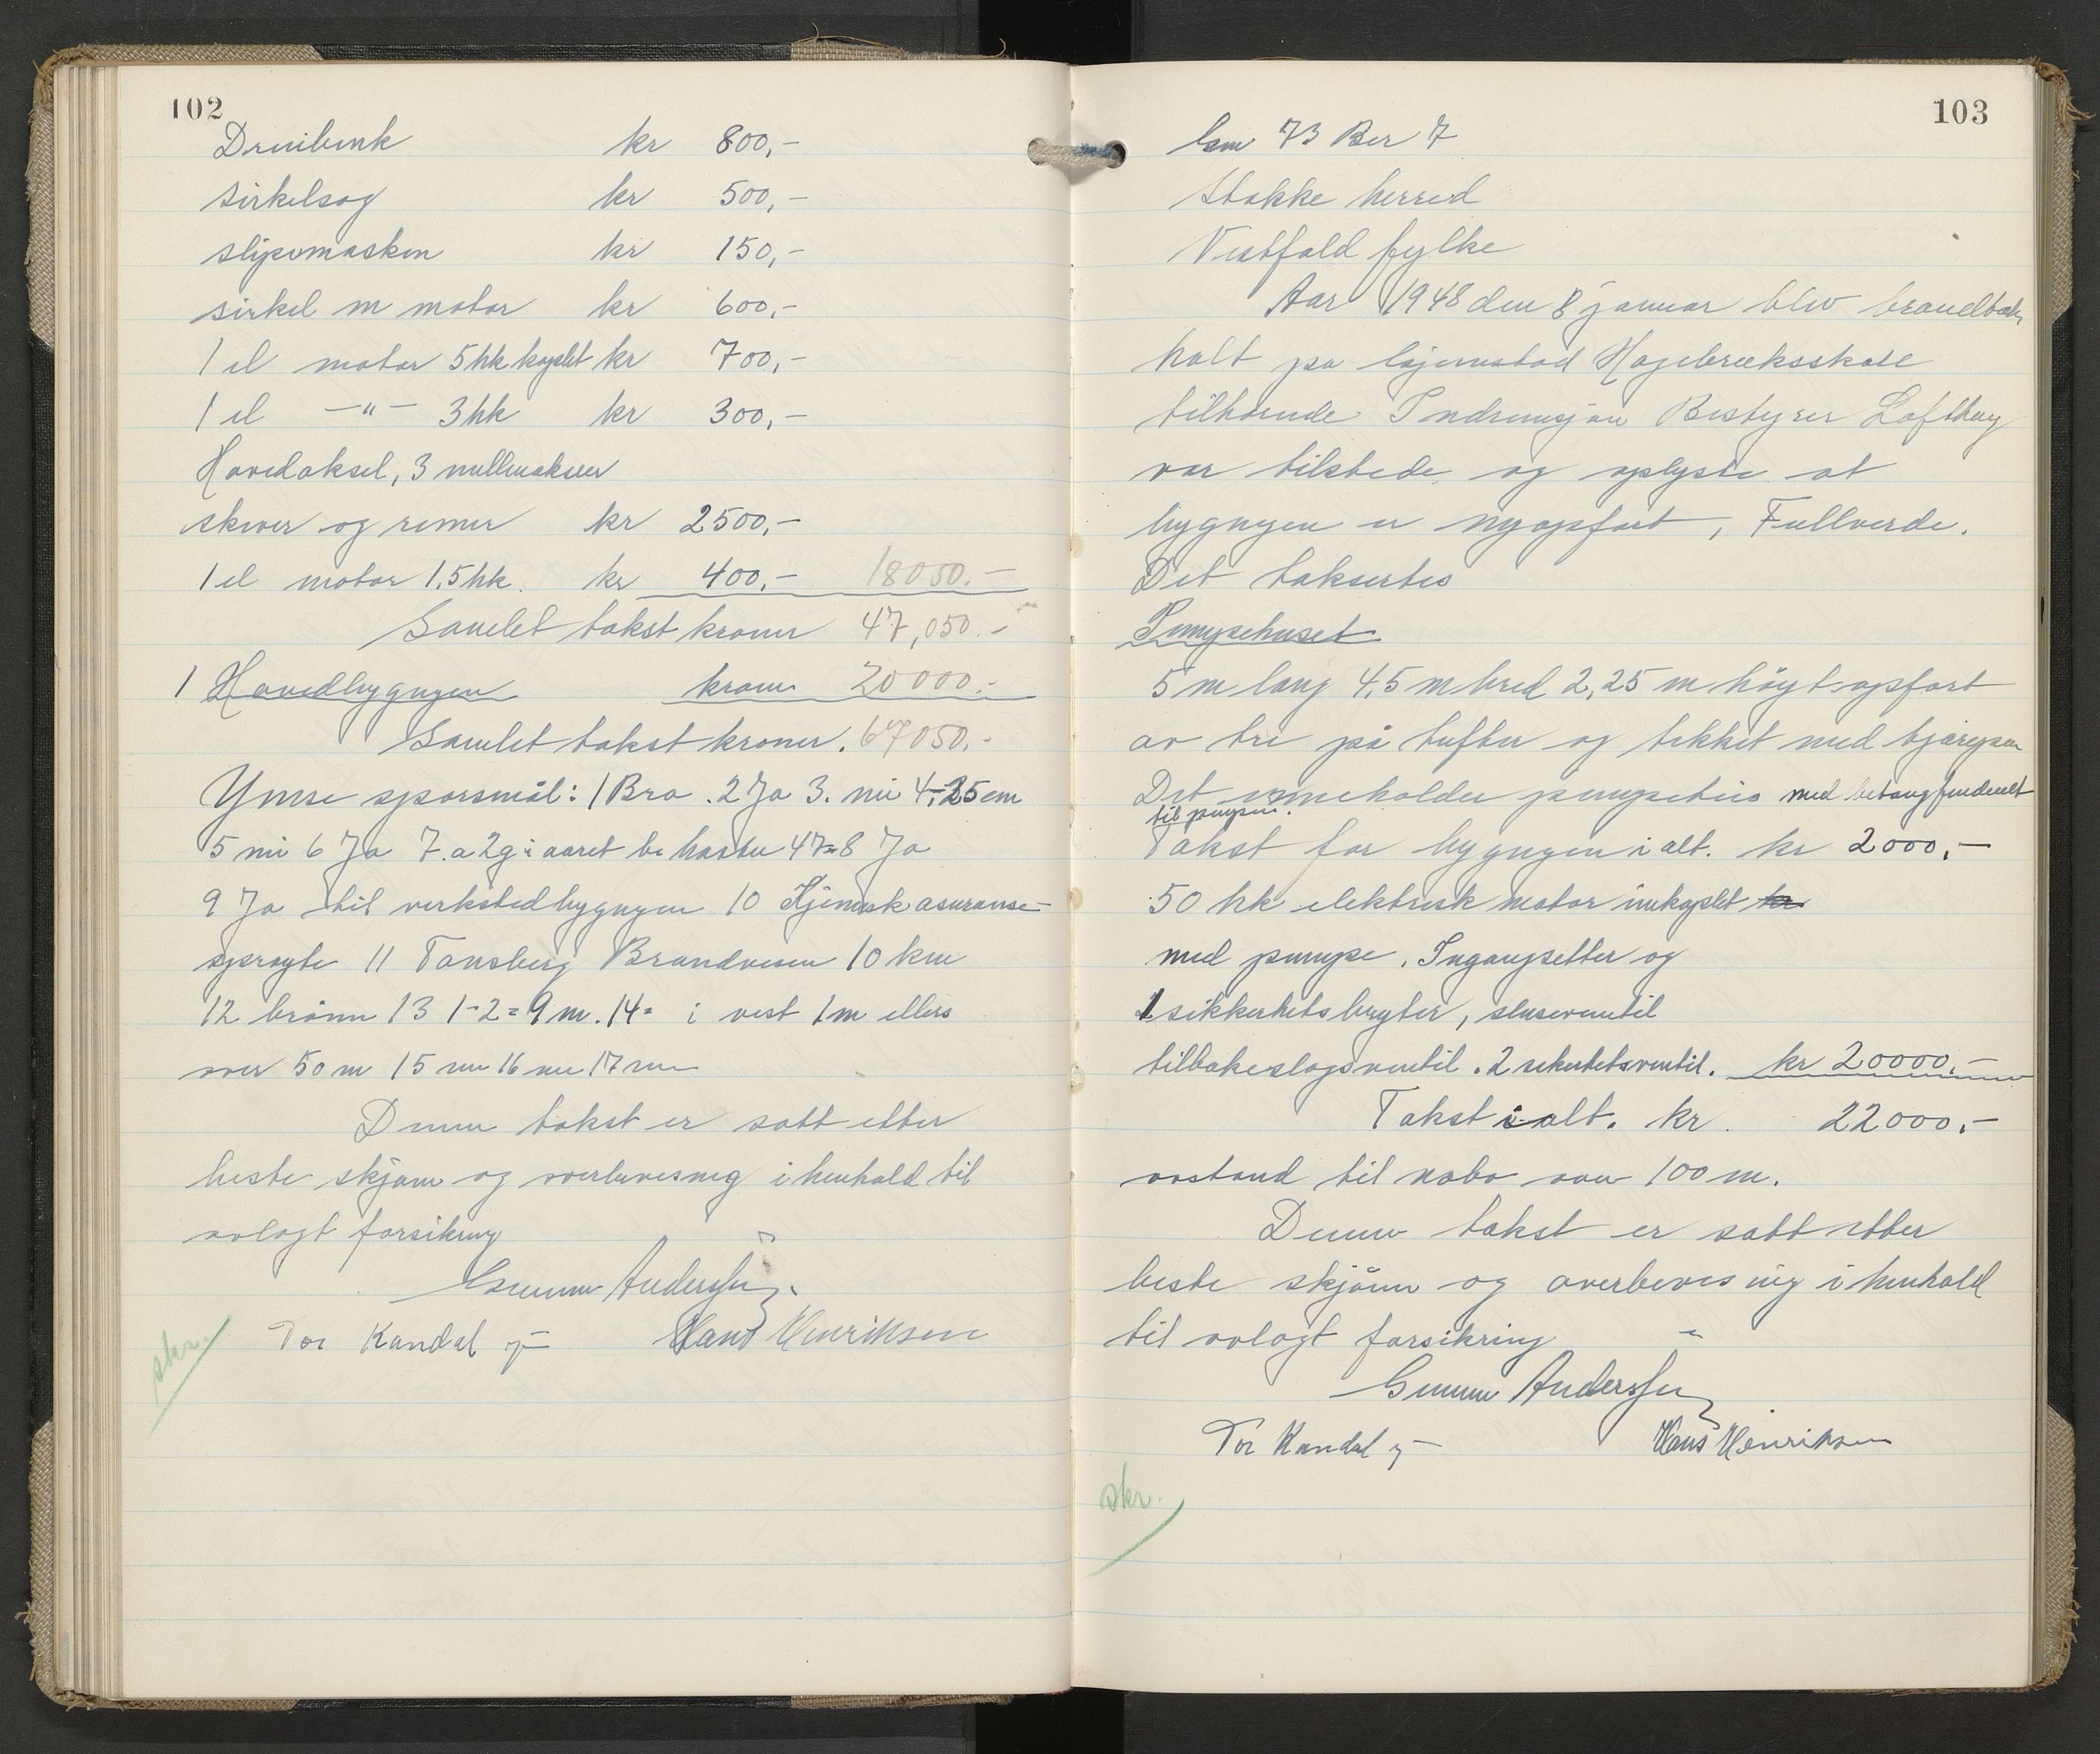 102
Dreiibenk kr 800,-
sirkelsag kr 500,-
slipemaskin kr 150,-
sirkel m motor kr 600,-
1 el motor 5 hk koplet kr 700,-
1 el -"- 3 hk kr 300,-
Hovedaksel, 3 mellemakser
skiver og remer kr 2500,-
1 el motor 1,5 hk. kr 400,- 18050.-
Samlet takst kroner 47,050.-
1 Hovedbygngen kroner 20000.-
Samlet takst kroner. 67050.-
Ymse sporsmål: 1 Bra . 2 Ja 3. nei 4, 25 cm
5 nei 6 Ja 7. a 2 g i aaret 47 = 8 Ja
9 Ja til verkstedbygngen 10 Hjemsk asuranse-
sproyte 11 Tønsberg Brandvesen 10 km
12 brønn 13 1-2 = 9 m. 14 = i vest 1 m ellers
over 50 m 15 nei 16 nei 17 nei
Denne takst er satt etter
beste skjønn og overbevisning i henhold til
avlagt forsikring
Gunnar Anderssen
Tor Kandal Hans Henriksen
skr.
103
Gnr 73 Bnr 7
Stokke herred
Vestfold fylke
Aar 1948 den 8 januar blev brandtakst
holt på Gjennestad Hagebruksskole
tilhørende Indremisjon Bestyrer Lofthus
var tilstede og oplyste at
bygngen er nyopført, Fullverde.
Det taksertes
Pumpehuset
5 m lang 4,5 m bred 2,25 m høyt opført
av tre på tufter og tekket med
Det inneholder med betong fundament
til pumpen.
Takst for bygngen i alt. kr 2000,-
50 hk elektrisk motor innkoplet kr
med pumpe. Ingangsetter og
1 sikkerhetsbryter, sluseventil
tilbakeslagsventil. 2 sikerhetsventil. kr 20000.-
Takst i alt. kr. 22000.-
avstand til nabo over 100 m.
Denne takst er satt etter
beste skjønn og overbevisning i henhold
til avlagt forsikring
Gunnar Anderssen
Tor Kandal Hans Henriksen
skr.